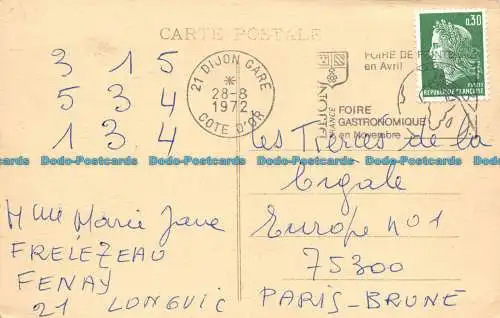 CARTE POSTALE
0,30
REPUBLIQUE FRANÇAISE
21 DIJON GARE
28-8
1972
COTE D'OR
FOIRE DE PRINTEMPS
en Avril
FOIRE
GASTRONOMIQUE
en Novembre
3 1 5
5 3 4
1 3 4
Dodo-Postcards Dodo-Postcards Dodo-Postcards Dodo-Postcards Dodo-Postcards
Les de la
Cigale
Europe no 1
75300
PARIS-BRUNE
Mme Marie Jane
FRELEZEAU
FENAY
21 LONGVIC